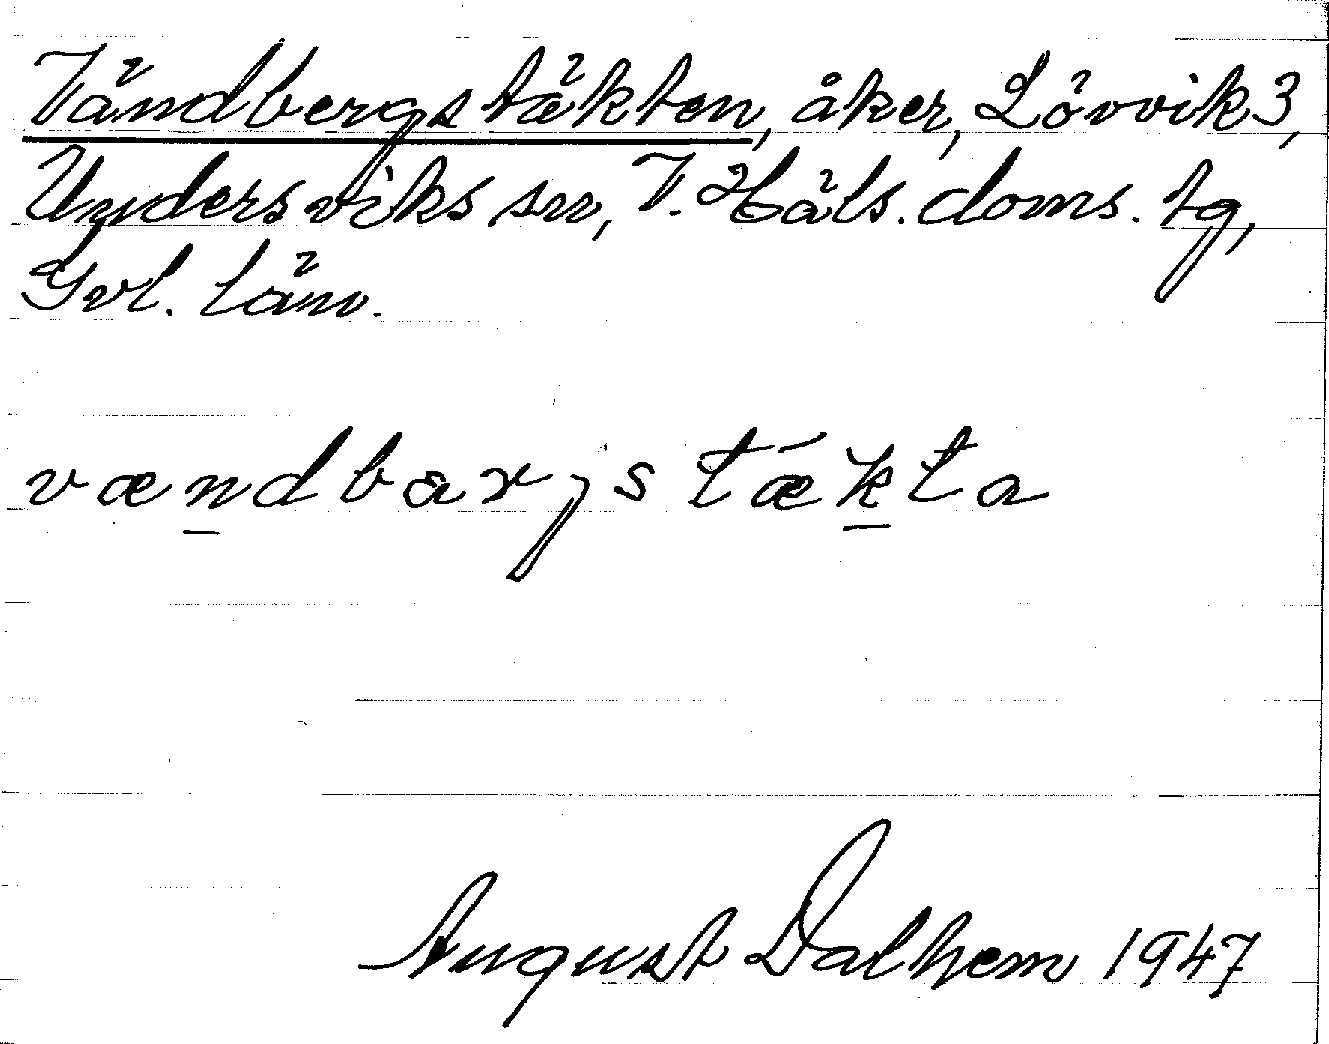 Vändbergstäkten, åker, Lövvik 3,
Undersviks sn, V. Häls. doms. tg,
Gvl. län.
vændbarjs tækta
August Dalhem 1947